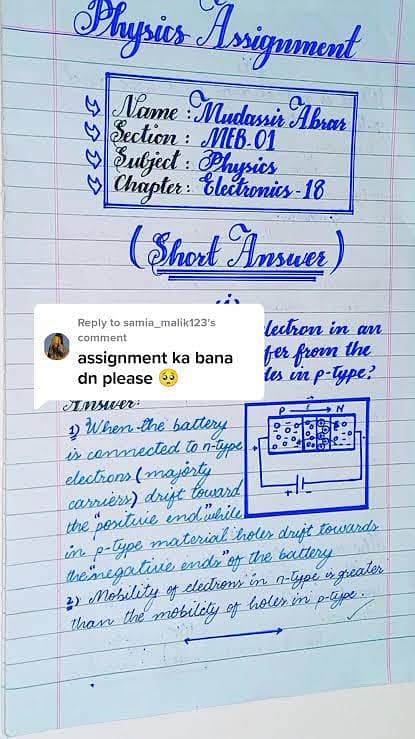 Physics Assignment
Name : Mudassir Abrar
Section : MEB-01
Subject : Physics
Chapter: Electronics - 18
(Short Answer)
Reply to samia_malik123's
comment
assignment ka bana
dn please 🥺
lectron in an
fer from the
les in p-type?
Answer:
P E N
- +
+ -
1) When the battery
is connected to n-type
electrons (majorty
carriers) drift toward
the "positive end" while
in p-type material holes drift towards
the "negative ends" of the battery
2) Mobility of electrons in n-type is greater
than the mobility of holes in p-type.